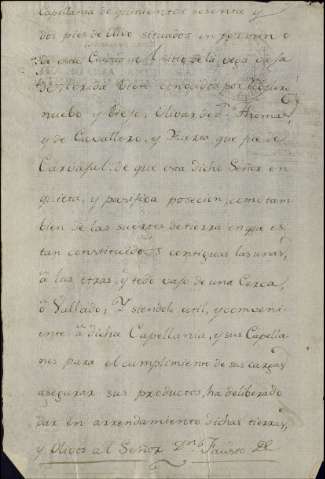 Capellania de quinientos sesenta y
dos pies de Olivo situados en
de esta Ciudad al sitio de la vega
tiene conocidos por
nuebo y Viejo, Olivar de Dn.
y de Cavallero, y Suerte que fue de
Carvajal. de que esta dicho Señor en
quieta, y pasifica posecion, como tam
bien de las suertes de tierra en que es
tan constituidos contiguas las unas,
â las otras, y todo vajo de una Cerca,
ô Vallado; Y siendole util, y conveni
ente â dicha Capellania, y sus Capella
nes para el cumplimiento de sus cargas
asegurar sus productos, ha deliberado
dar en arrendamiento dichas tierras,
y Olivos al Señor Dn. Fausto